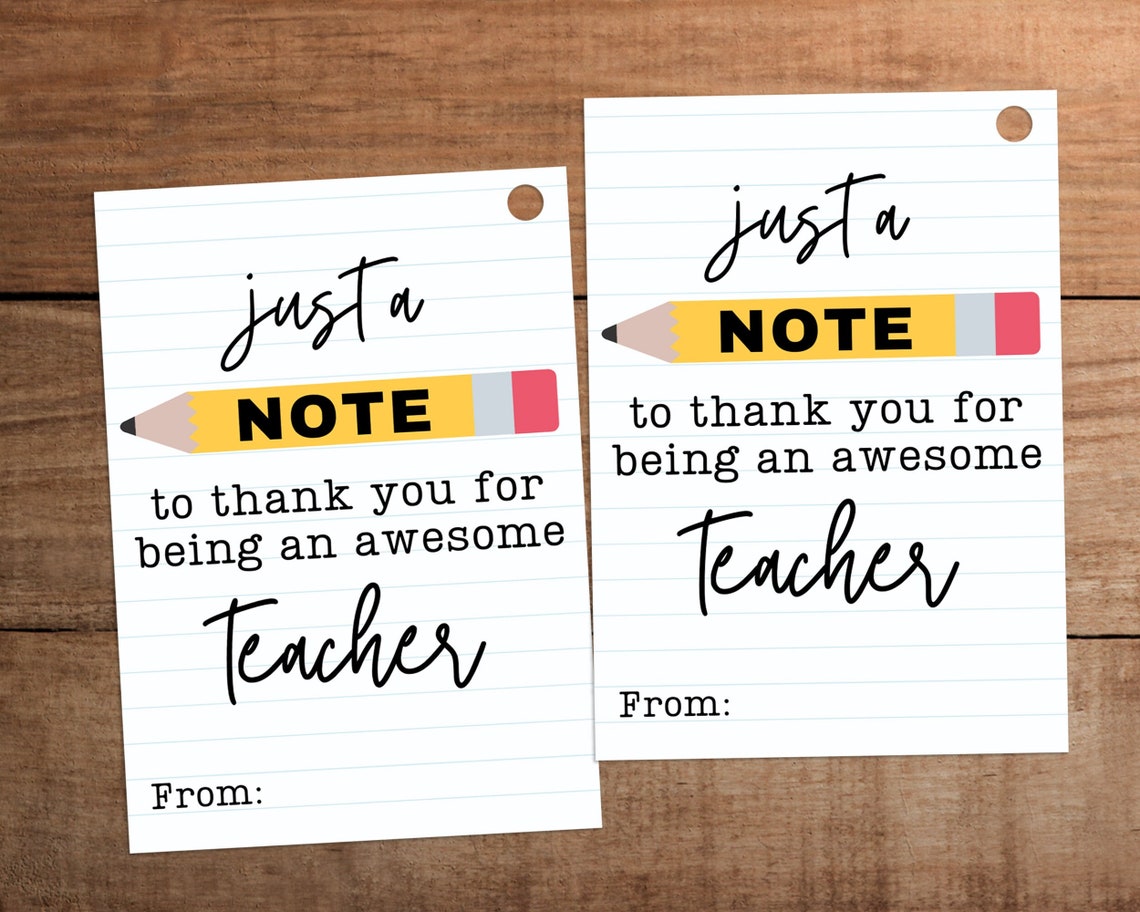 just a
NOTE
to thank you for
being an awesome
Teacher
From:
just a
NOTE
to thank you for
being an awesome
Teacher
From: